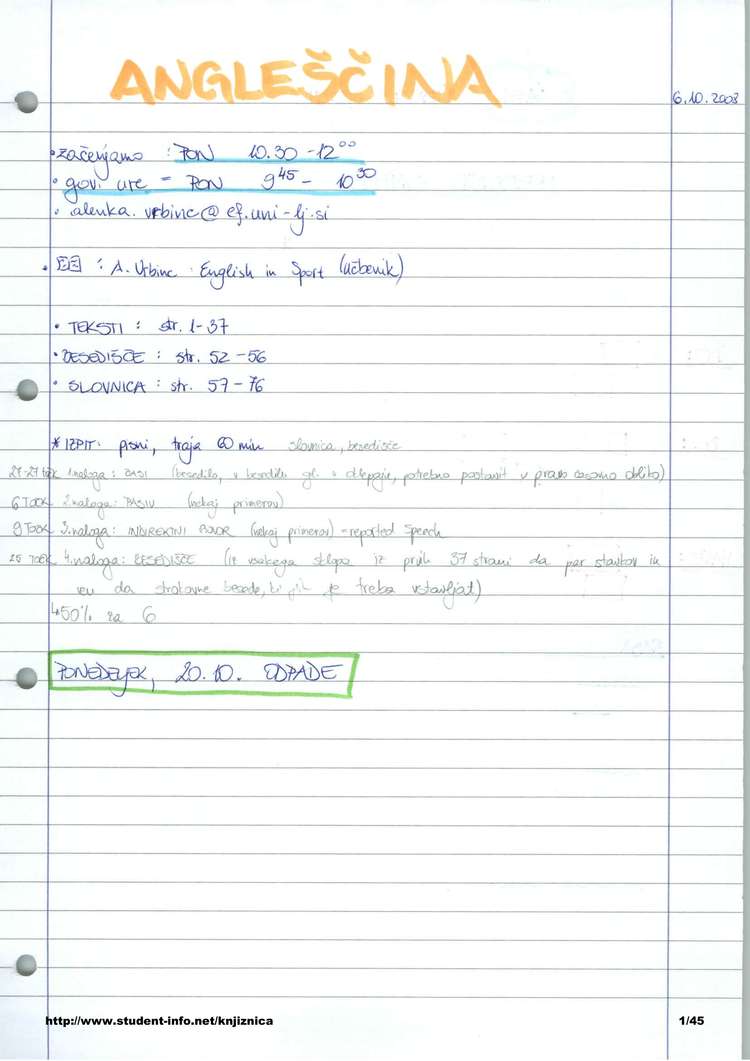 ANGLEŠČINA
6.10.2008
• začenjamo : PON 10.30 - 12⁰⁰
• gov. ure = PON 9⁴⁵ - 10³⁰
• alenka.vrbinc@ef.uni-lj.si
• : A. Vrbinc : English in Sport (učbenik)
• TEKSTI : str. 1-37
• BESEDIŠČE : str. 52 - 56
• SLOVNICA : str. 57 - 76
* IZPIT: pisni, traja 60 min slovnica, besedišče
1. naloga: ČASI (besedilo, v besedilu gl. v oklepaju, potrebno postavit v pravo časovno obliko)
6 TOČK 2. naloga: PASIV (nekaj primerov)
9 TOČK 3. naloga: INDIREKTNI GOVOR (nekaj primerov) - reported Speech
25 TOČK 4. naloga: BESEDIŠČE (iz vsakega sklopa iz prvih 37 strani da par stavkov in
ven da strokovne besede, ki jih je treba vstavljat)
50% za 6
PONEDELJEK, 20.10. ODPADE
http://www.student-info.net/knjiznica
1/45